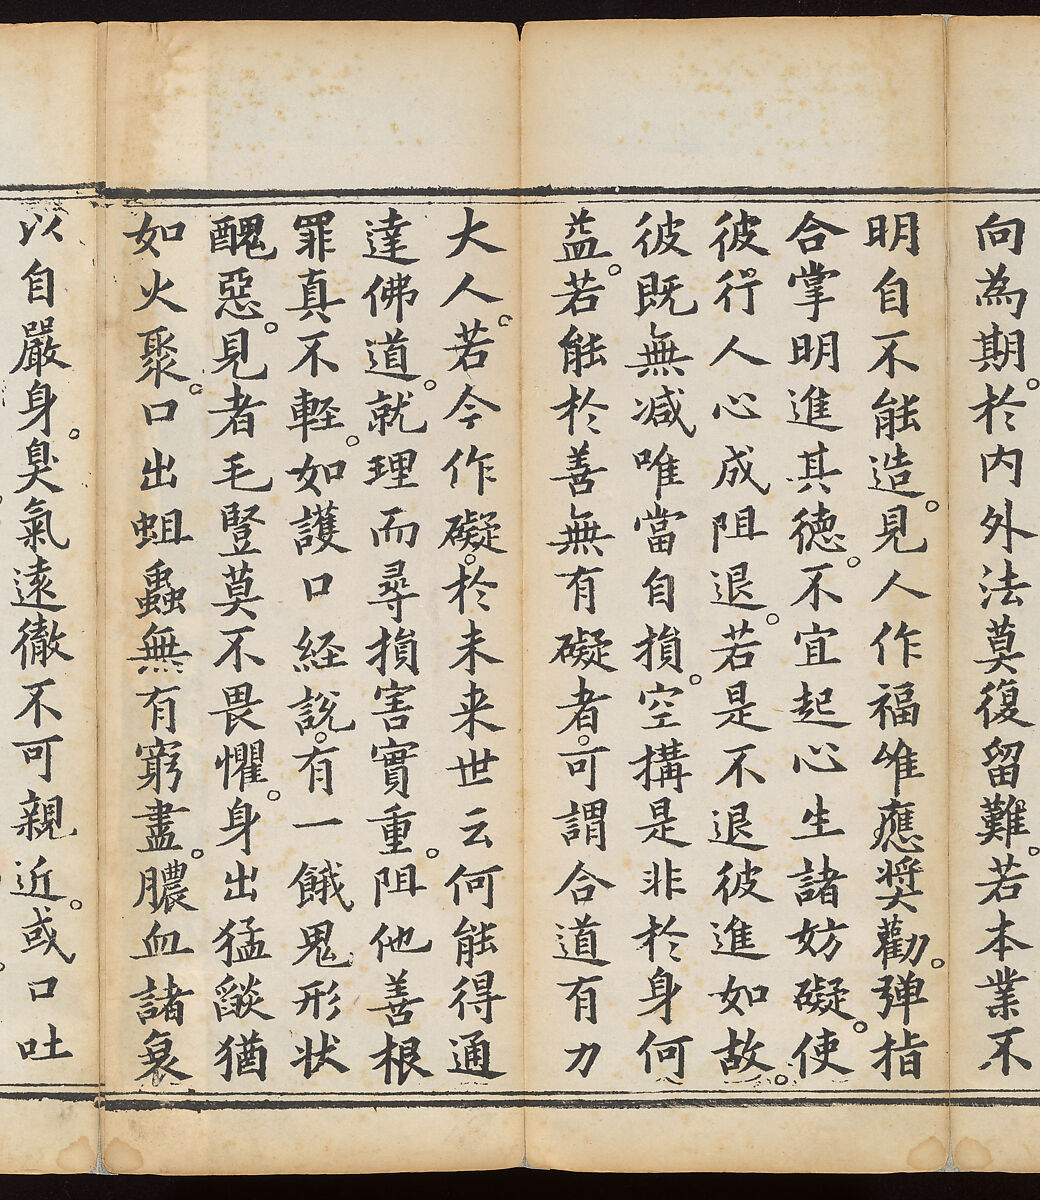 向為期。於內外法莫復留難。若本業不
明自不能造。見人作福唯應奬勸。弾指
合掌明進其徳。不宜起心生諸妨礙。使
彼行人心成阻退。若是不退彼進如故。
彼既無減唯當自損。空搆是非於身何
益。若能於善無有礙者。可謂合道有力
大人。若今作礙。於未来世云何能得通
達佛道。就理而尋損害實重。阻他善根
罪真不軽。如護口経説。有一餓鬼形状
醜惡。見者毛竪莫不畏懼。身出猛燄猶
如火聚。口出蛆蟲無有窮盡。膿血諸裒
以自嚴身。臭氣遠徹不可親近。或口吐